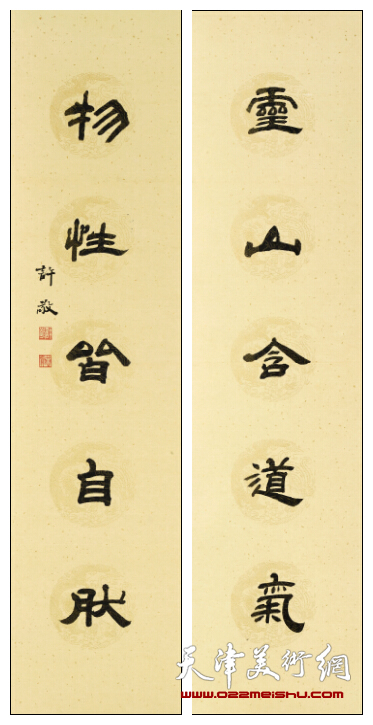 靈山含道氣
物性皆自然
許敬
天津美術網
www.022meishu.com